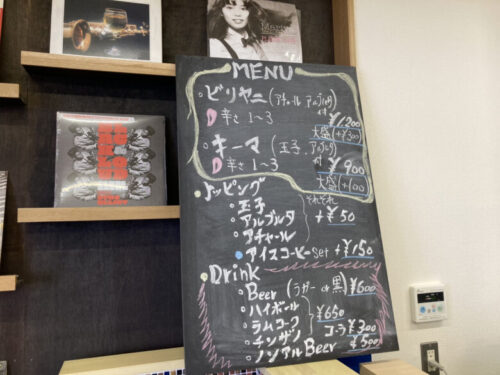 MENU
ビリヤニ(アチャール アルブルタ)付
辛さ 1~3
¥1200
大盛(+¥300)
キーマ(玉子、アルブルタ)付
辛さ 1~3
¥900
大盛(+100)
トッピング
玉子
アルブルタ
アチャール
それぞれ
+¥50
アイスコーヒー set +¥150
Drink
Beer (ラガー or 黒) ¥600
ハイボール
ラムコーク
チンザノ
¥650
コーラ ¥300
ノンアルBeer ¥500